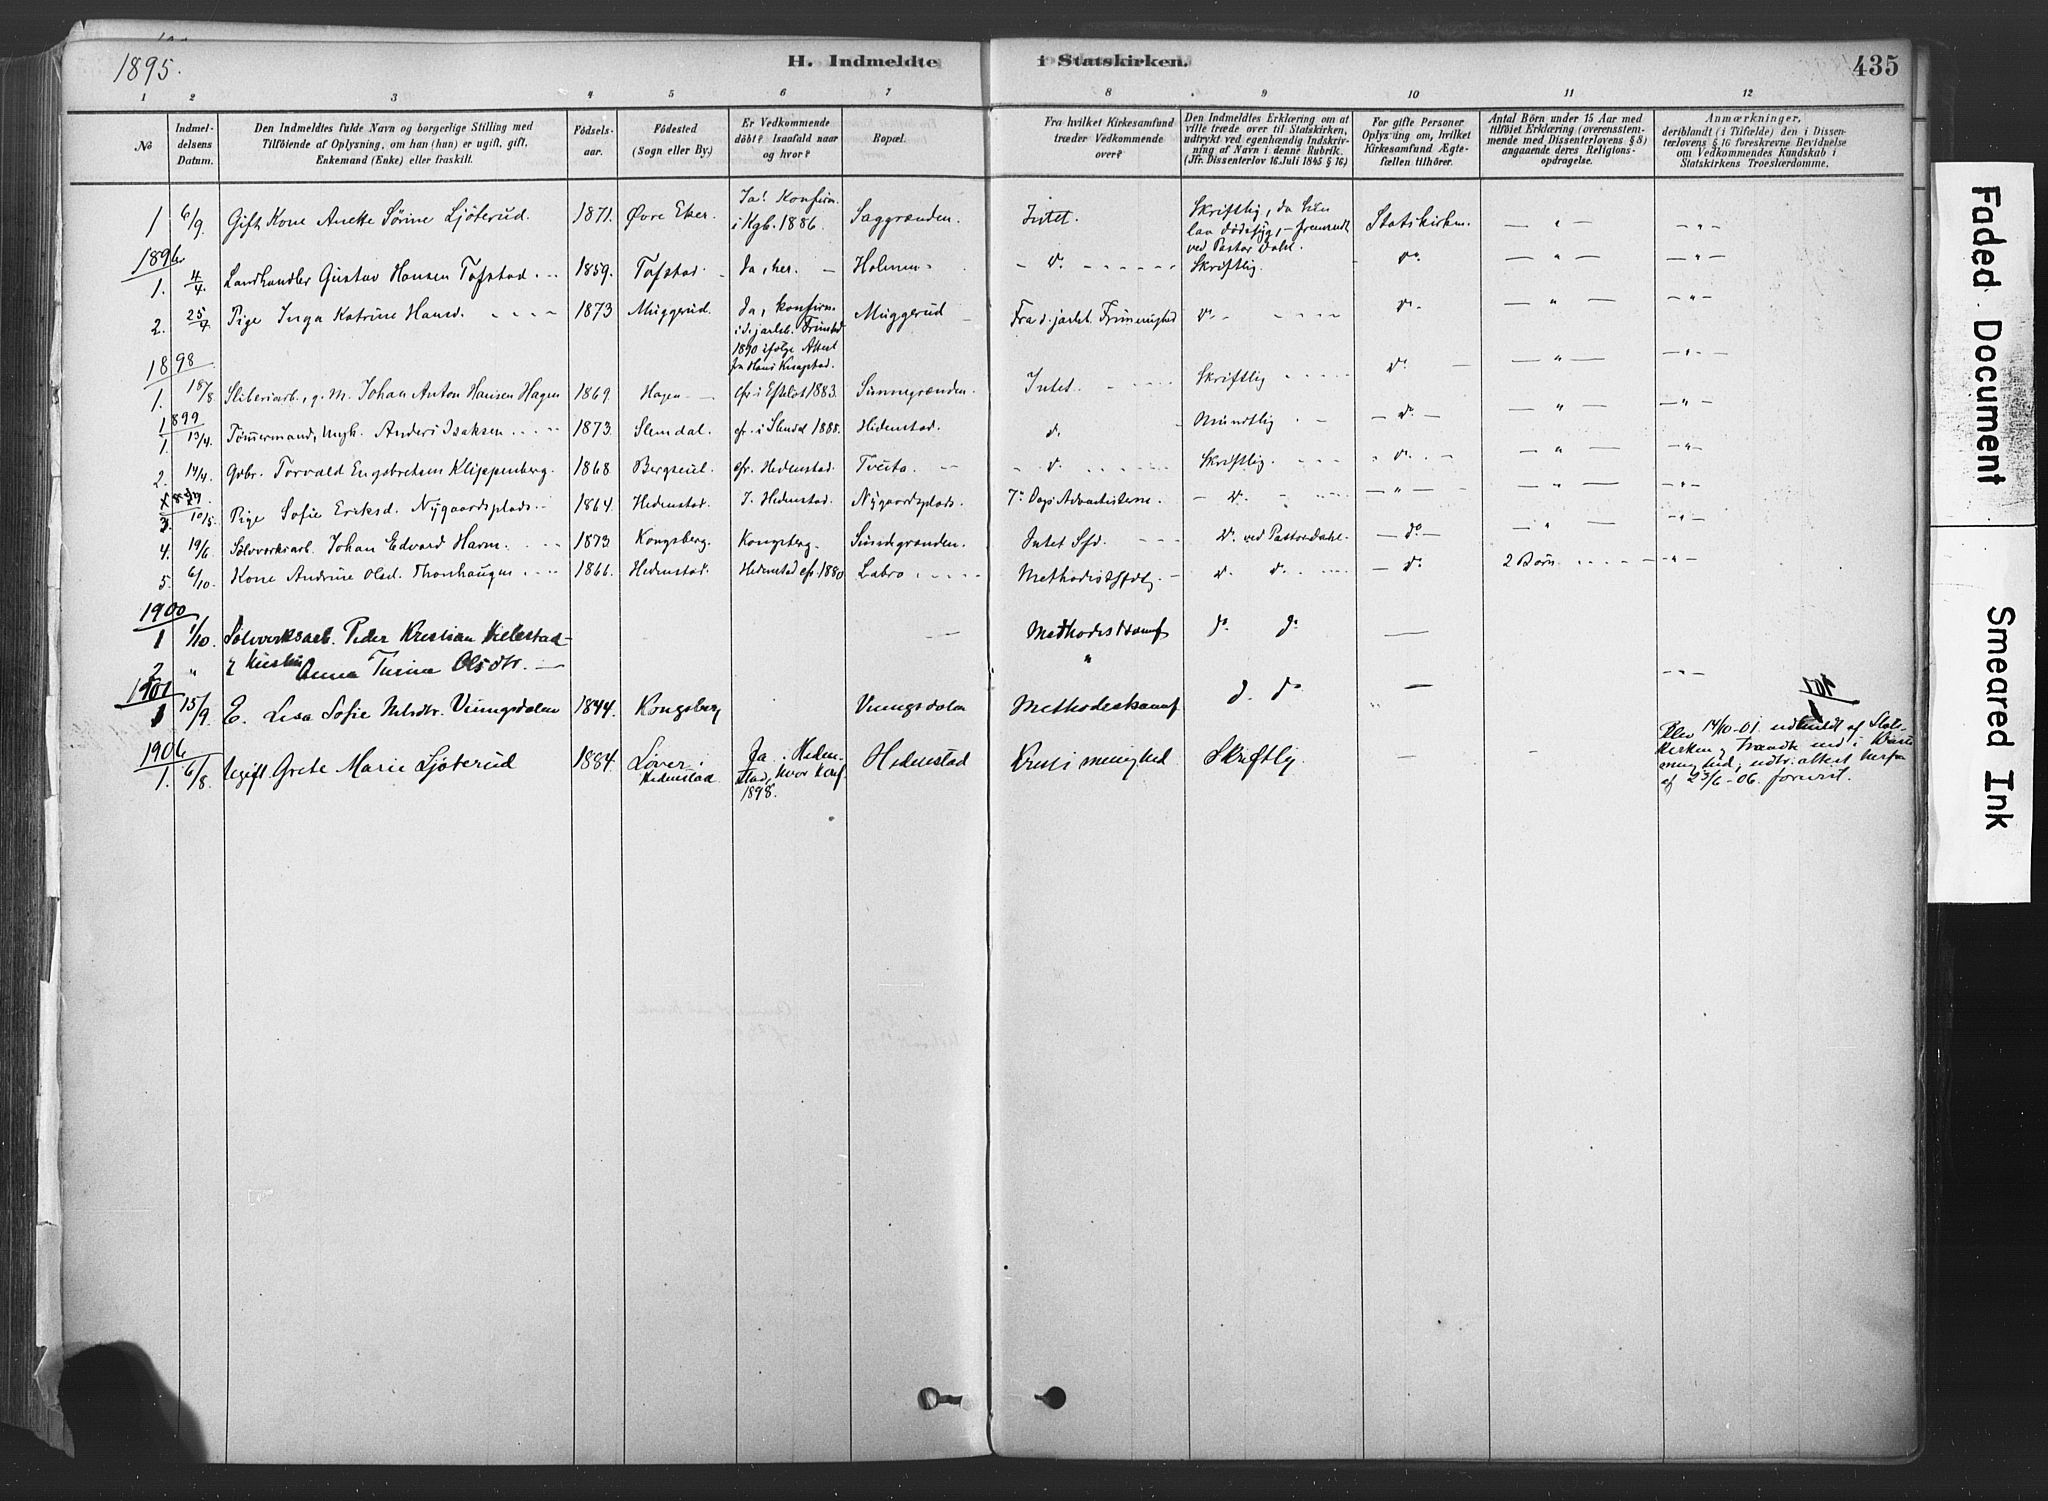 1895.
H. Indmeldte i Statskirken.
435
1 2 3 4 5 6 7 8 9 10 11 12
No
Indmel-
delsens
Datum.
Den Indmeldtes fulde Navn og borgerlige Stilling med
Tilföiende af Oplysning, om han (hun) er ugift, gift,
Enkemand (Enke) eller fraskilt.
Födsels-
aar.
Födested
(Sogn eller By.)
Er Vedkommende
döbt? Isaafald naar
og hvor?
Bopæl.
Fra hvilket Kirkesamfund
træder Vedkommende
over?
Den Indmeldtes Erklæring om at
ville træde over til Statskirken,
udtrykt ved egenhændig Indskriv-
ning af Navn i denne Rubrik.
(Jfr. Dissenterlov 16 Juli 1845 § 16)
For gifte Personer
Oplysning om, hvilket
Kirkesamfund Ægte-
fællen tilhörer.
Antal Börn under 15 Aar med
tilföiet Erklæring (overensstem-
mende med Dissenterlovens § 8)
angaaende deres Religions-
opdragelse.
Anmærkninger,
deriblandt (i Tilfælde) den i Dissen-
terlovens § 16 foreskrevne Bevidnelse
om Vedkommendes Kundskab i
Statskirkens Troeslærdomme.
1 6/9. Gift Kone Anette Sörine Ljöterud. 1871. Øvre Eker. Ja! Konfirm. i Kgb. 1886. Saggrænden. Intet. Skriftlig, da hun laa dödssyg, - fremsendt ved Pastor Dahl. Statskirken. — " — — " —
1896
1. 4/4. Landhandler Gustav Hansen Tofstad 1859. Tofstad Ja, her. Holmen do. Skriftlig. do — " — — " —
2. 25/4 Pige Inga Katrine Hansd. 1873 Muggerud. Ja, konfirm. 1890 ifölge Attest fra Hans Knapstad. Muggerud Fra d. jarlsb. Frimenighed do. do — " — — " —
1898
1. 18/8 Sliberiarb., g. M. Johan Anton Hansen Hagen 1869. Hagen cfr. i Efteløt 1883. Sunnegrænden. Intet. Skriftlig do. — " — — " —
1899
1. 13/4. Tömmermand, Ungk. Anders Isaksen 1873. Slemdal. cfr. i Slemdal 1888. Hedenstad. do. Mundtlig — do. — — " — — " —
2. 14/4. Gbr. Torvald Engebretsen Klippenberg. 1868 Bergseie. cfr. Hedenstad. Tveita do. Skriftlig. do. — " — — " —
3. 10/5. Pige Sofie Eriksd. Nygaardsplads. 1864. Hedenstad. J. Hedenstad. Nygaardsplads. 7de Dags Adventisterne. do. — " — — " — — " —
4. 19/6. Sölvverksarb. Johan Edvard Harm. 1873. Kongsberg. Kongsberg. Sundegrænden. Intet Sfd. do. ved Pastor Dahl. — do — — " — — " —
5. 6/10. Kone Andrine Olsd. Thorshaugen 1866. Hedenstad. Hedenstad cfr. 1880. Labro Methodistsfd. do. do. — do. 2 Börn — " —
1900
1 1/10. Sölvverksarb. Peder Kristian Hellestad Methodistsamf do. do. —
2 " & Hustru Anna Turine Olsdtr. " — " —
1901
1 15/9. E. Lisa Sofie Nilsdtr. Vungsdalen 1844. Kongsberg Vungsdalen Methodesksamf do. do —
1906
1. 6/8. Ugift Grete Marie Ljöterud 1884. Löver i Hedenstad Ja. Hedenstad, hvor konf. 1898. Hedenstad Kristi menighed Skriftlig. — — Blev 14/10-01 udmeldt af Stats-
kirken og traadte ind i Kristi
menighed, udtr. attest herfra
af 23/6-06. forevist.
Faded Document
Smeared Ink